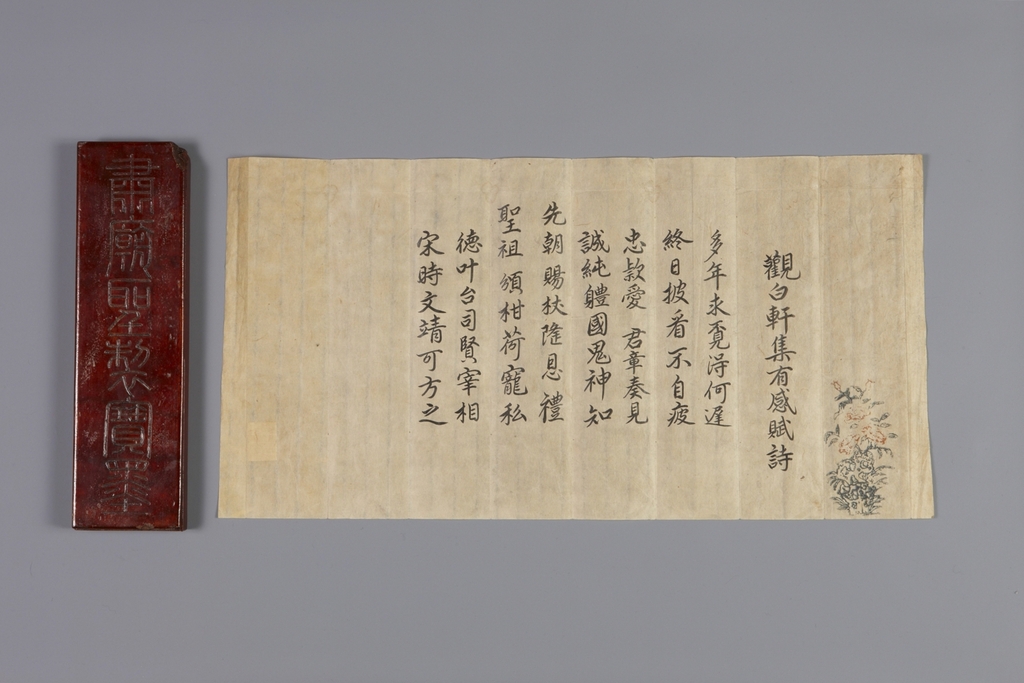 觀白軒集有感賦詩
多年求覓得何遲
終日披看不自疲
忠款愛 君章奏見
誠純體國鬼神知
先朝賜杖隆恩禮
聖祖頒柑荷寵私
德叶台司賢宰相
宋時文靖可方之
肅廟聖製寶墨